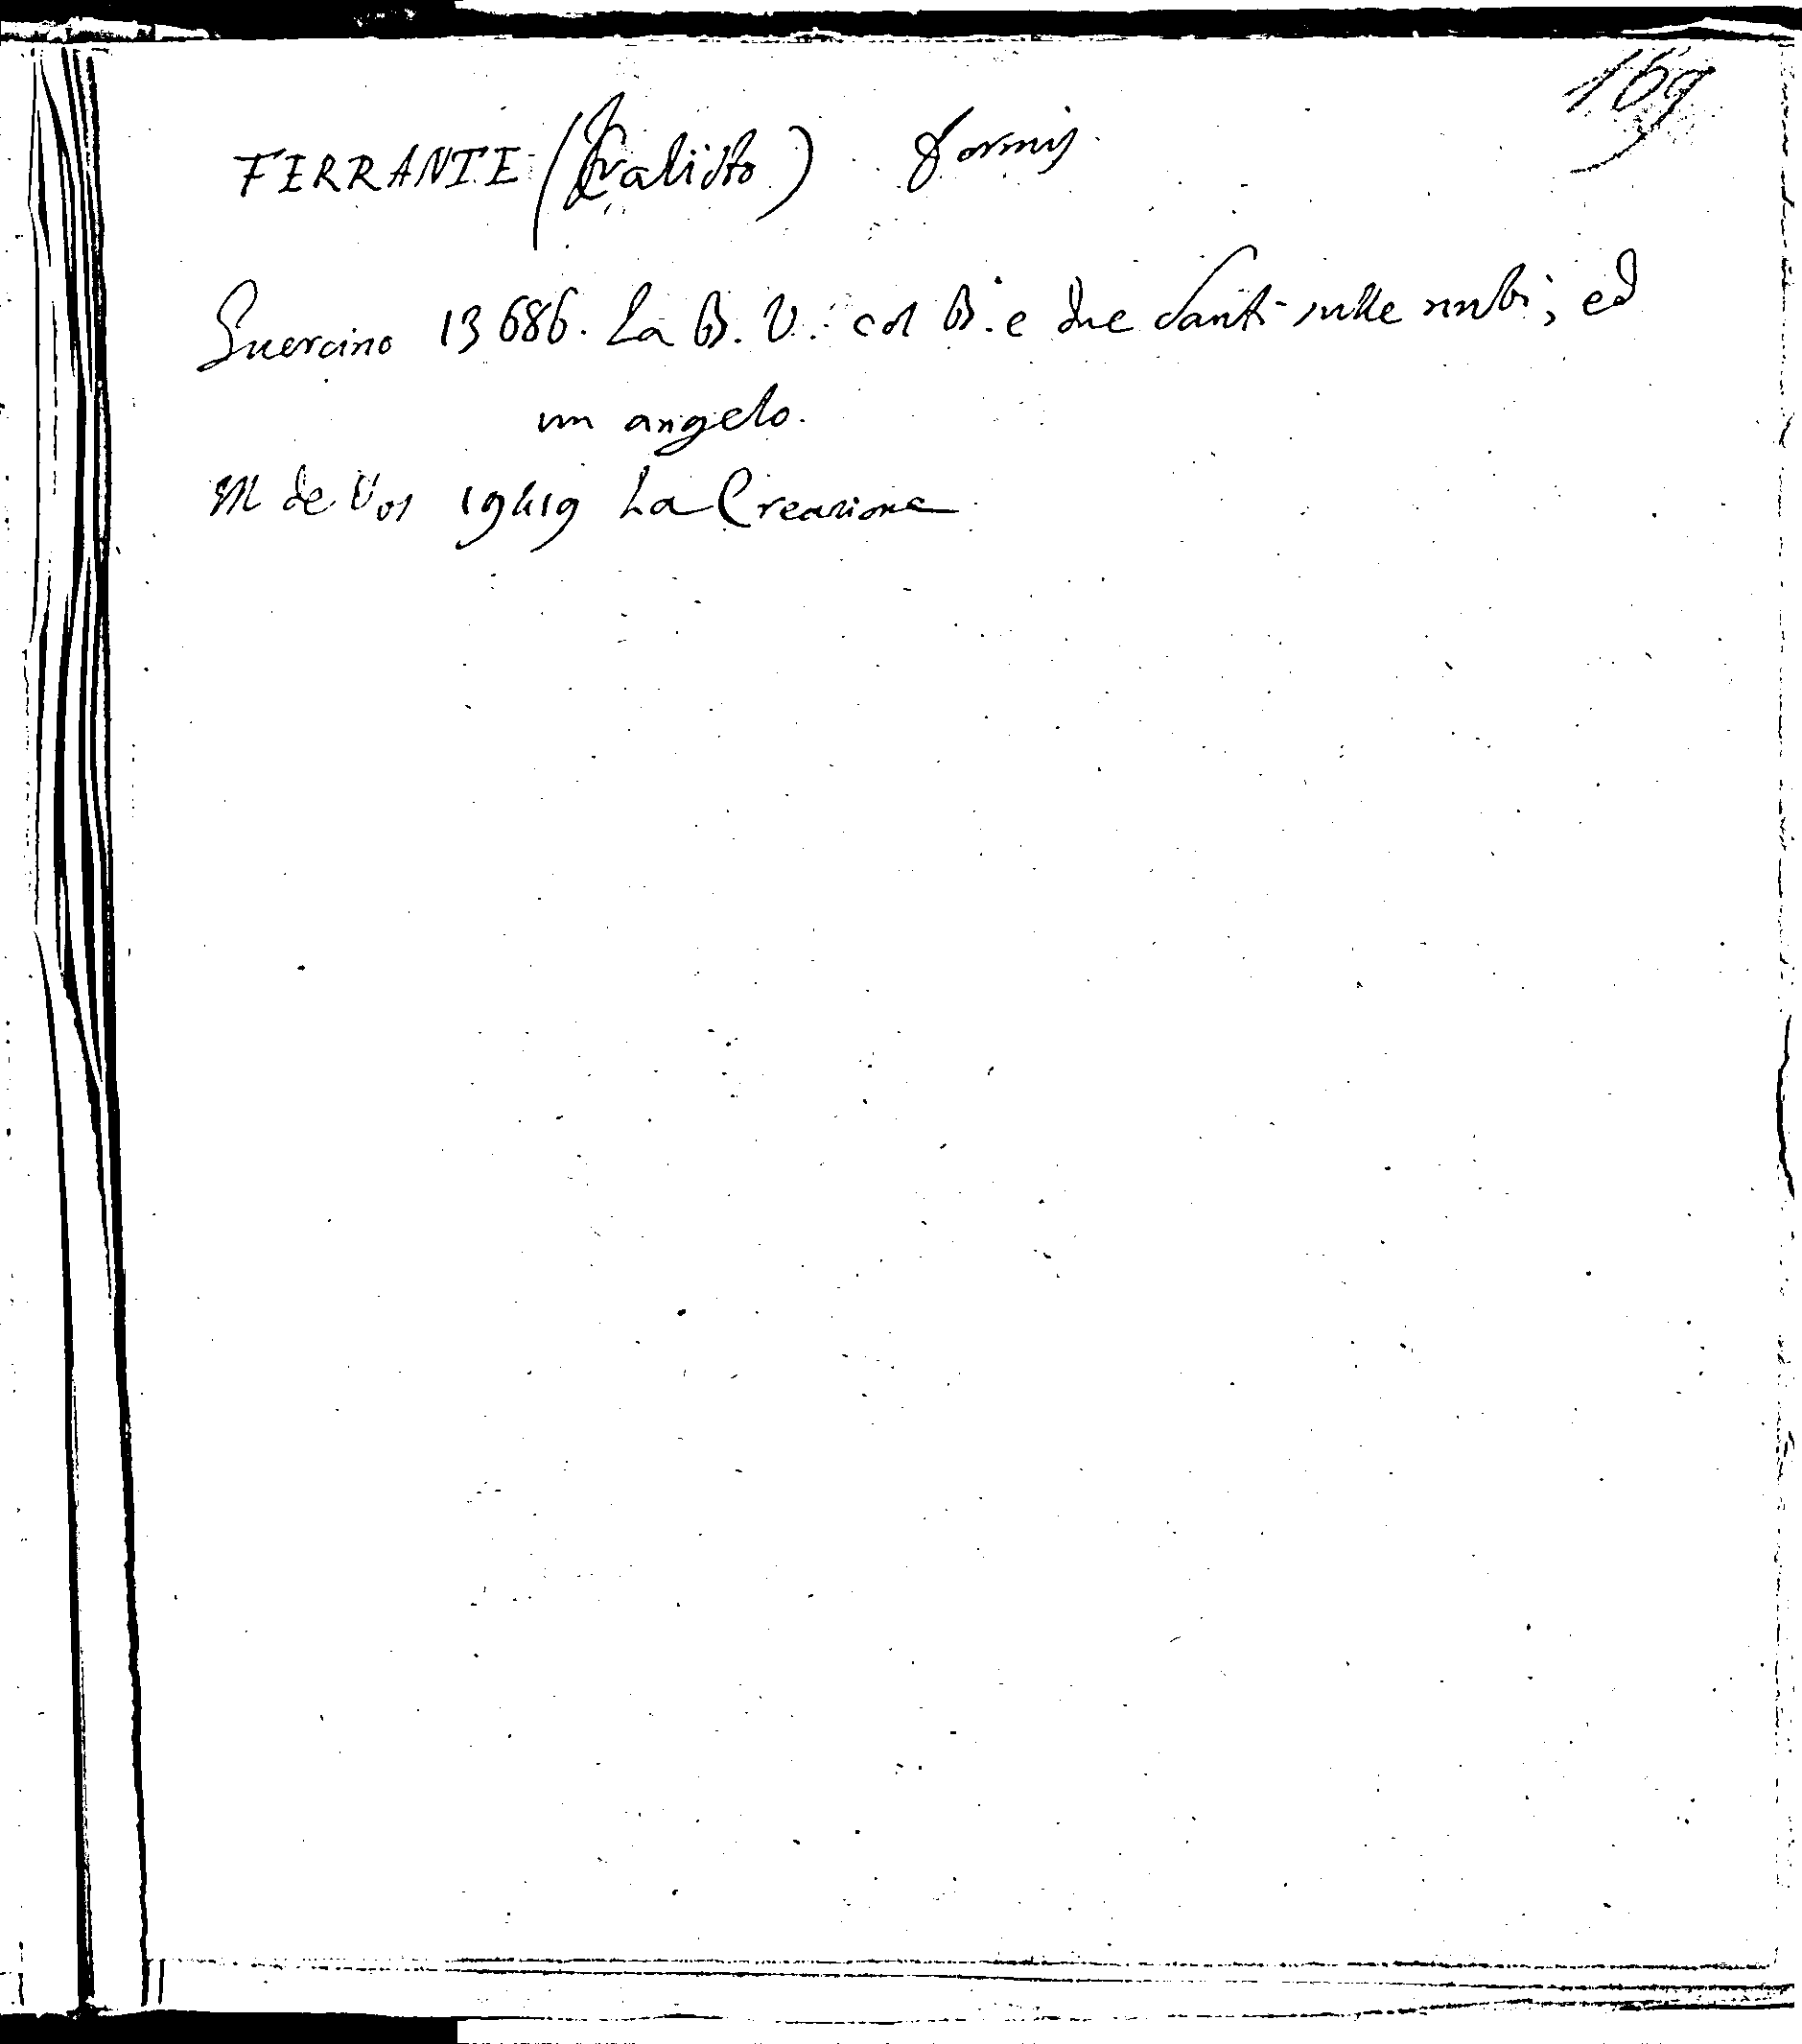 169
FERRANTE (Calisto) formis.
Guercino 13686. La B. V. col B. e due Santi sulle nubi; ed
un angelo.
M de Vos 19419 La Creazione